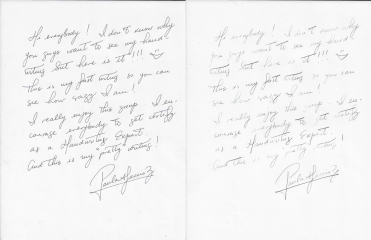 Hi everybody! I don't know why
you guys want to see my hand-
writing but here is it!!!
This is my fast writing so you can
see how crazy I am!
I really enjoy this group. I en-
courage everybody to get certify
as a Handwriting Expert.
And this is my "pretty" writing!
Hi everybody! I don't know why
you guys want to see my hand-
writing but here is it!!!
This is my fast writing so you can
see how crazy I am!
I really enjoy this group. I en-
courage everybody to get certify
as a Handwriting Expert.
And this is my "pretty" writing!